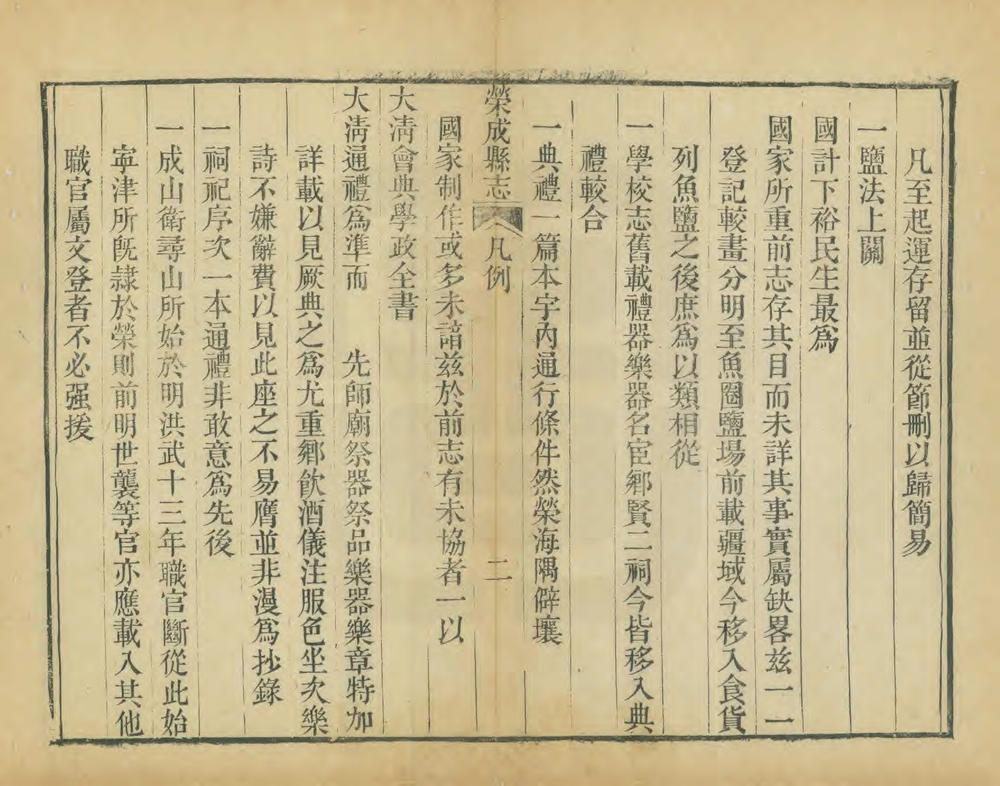 凡至起運存留並從節刪以歸簡易
一鹽法上關
國計下裕民生最爲
國家所重前志存其目而未詳其事實屬缺畧兹一一
登記較畫分明至魚圈鹽場前載疆域今移入食貨
列魚鹽之後庶爲以類相從
一學校志舊載禮器樂器名宦鄉賢二祠今皆移入典
禮較合
一典禮一篇本宇內通行條件然榮海隅僻壤
榮成縣志 凡例 二
國家制作或多未諳兹於前志有未協者一以
大淸會典學政全書
大淸通禮爲準而 先師廟祭器祭品樂器樂章特加
詳載以見厥典之爲尤重鄉飮酒儀注服色坐次樂
詩不嫌辭費以見此座之不易膺並非漫爲抄錄
一祠祀序次一本通禮非敢意爲先後
一成山衛尋山所始於明洪武十三年職官斷從此始
寧津所旣隷於榮則前明世襲等官亦應載入其他
職官屬文登者不必强援